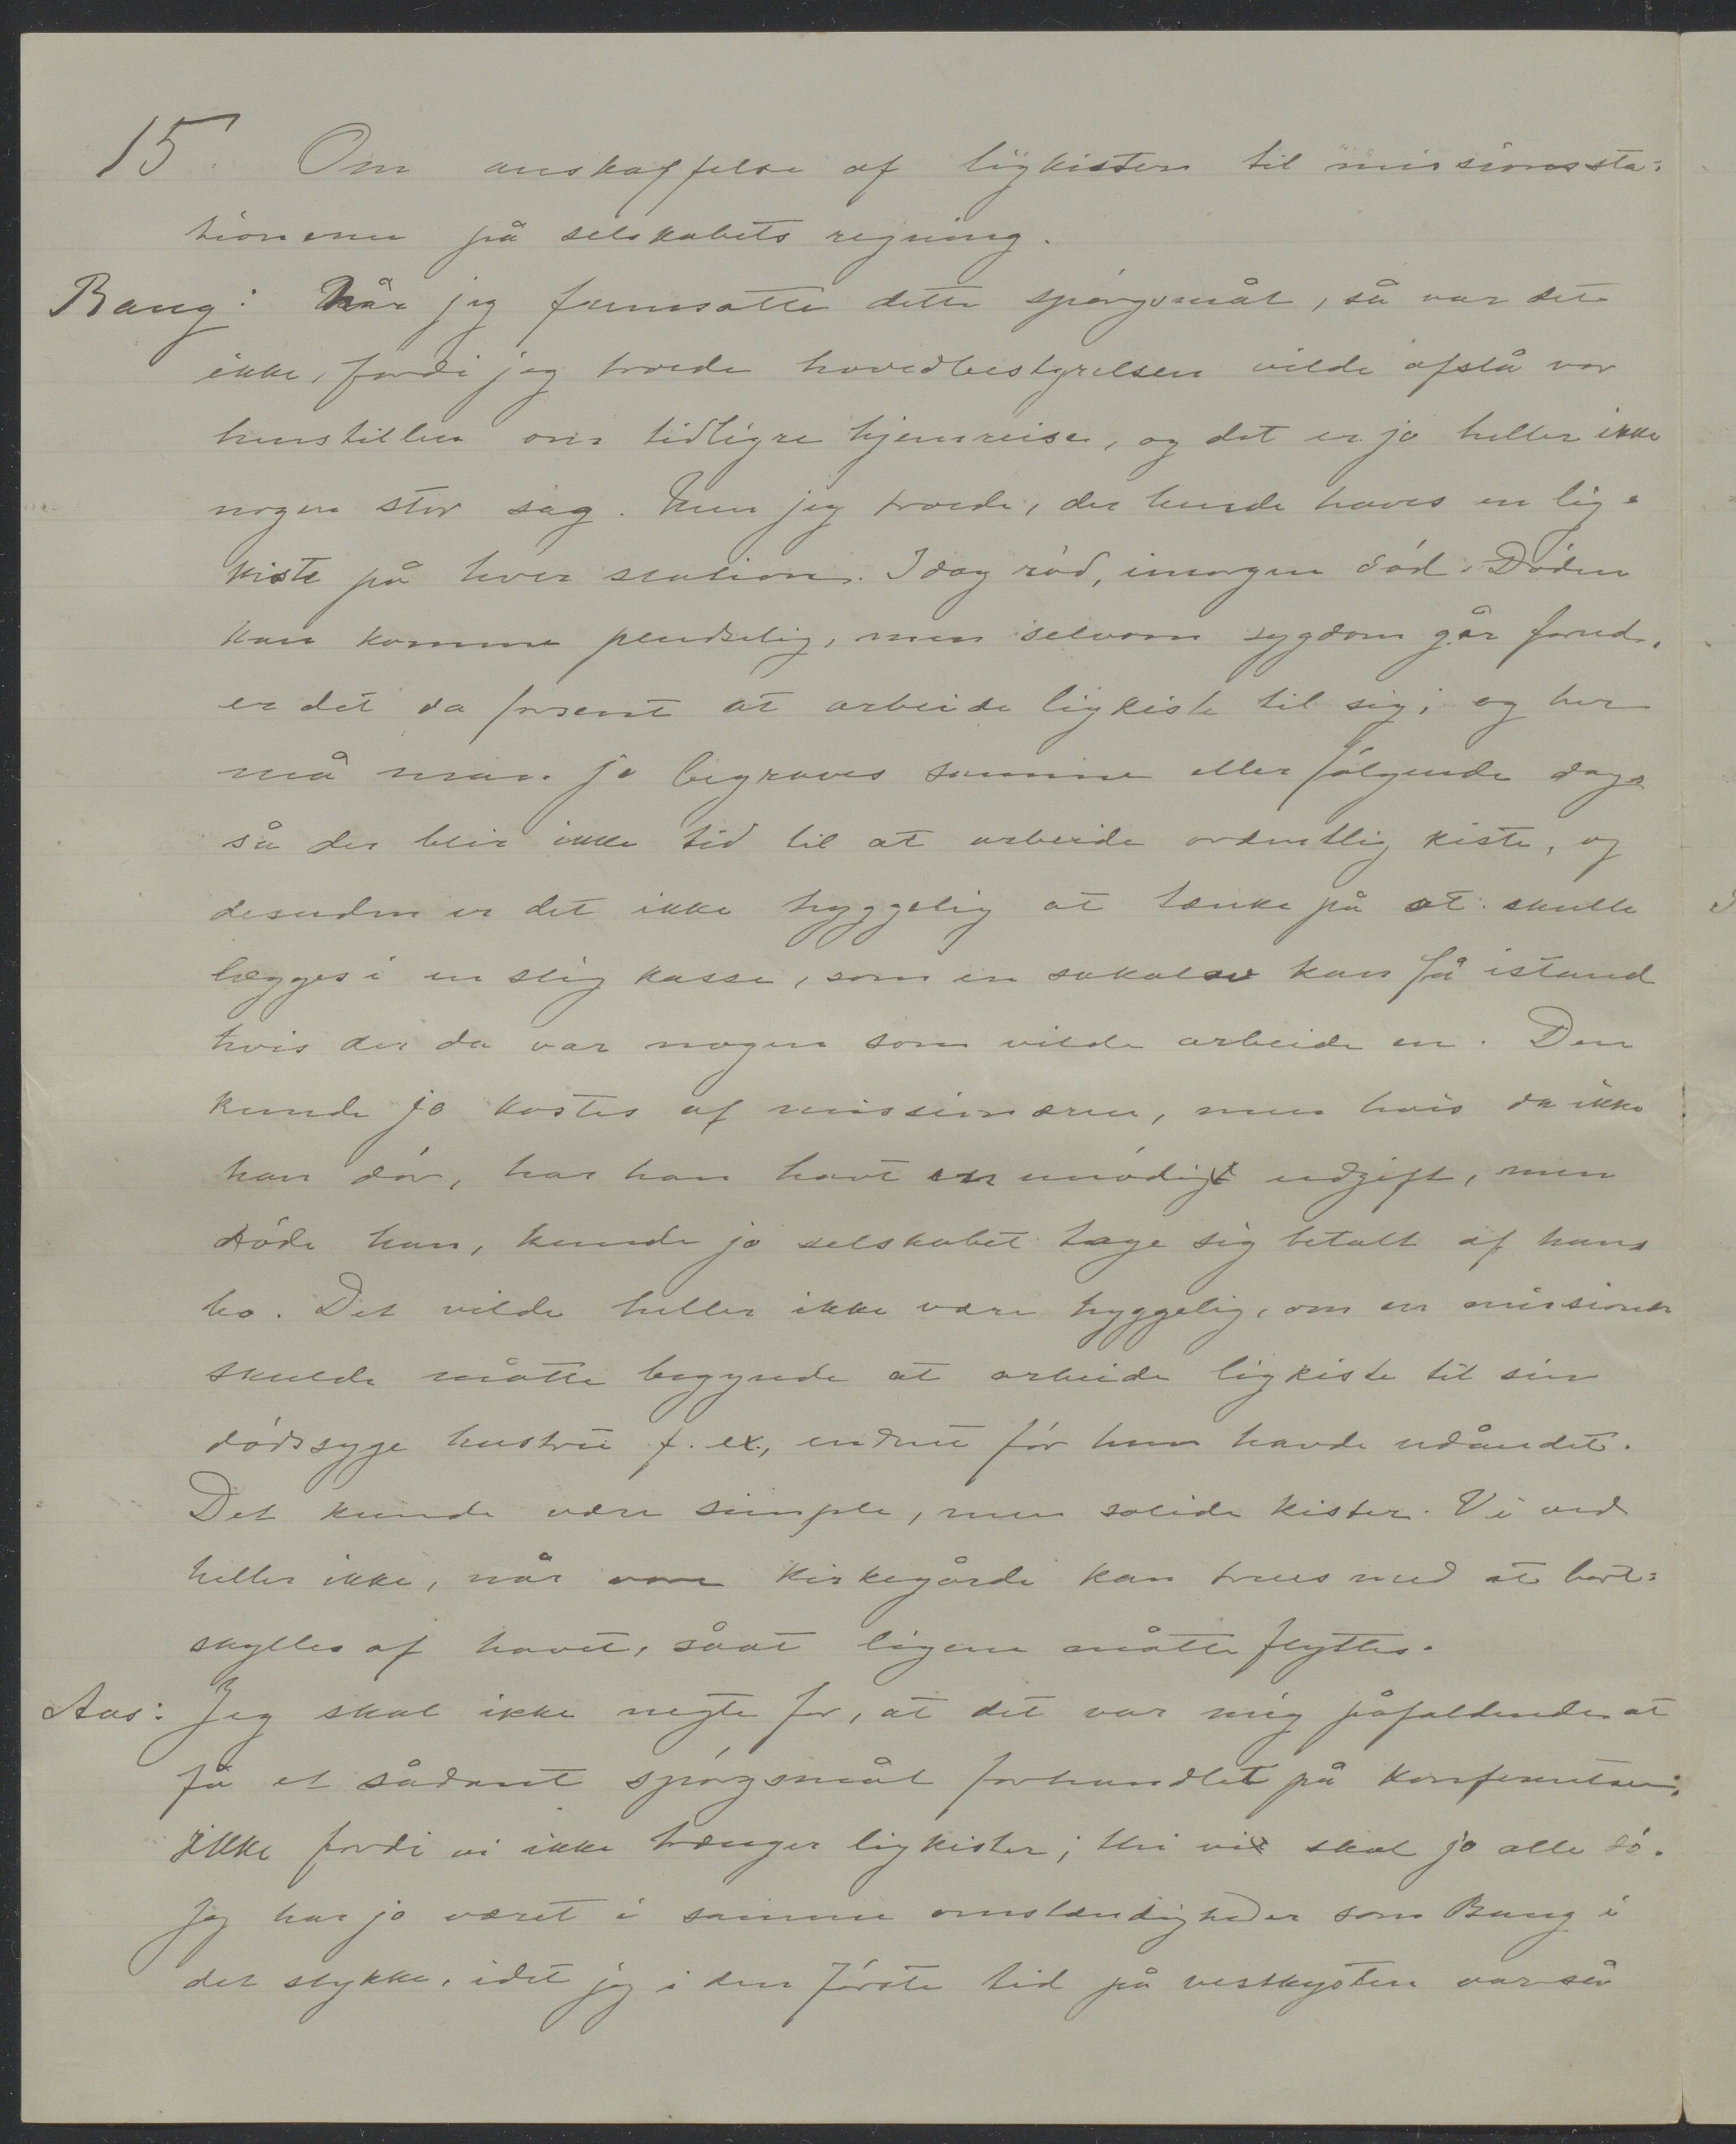 15. Om anskaffelse af ligkister til missionssta=
tionerne på selskabets regning.
Bang: Når jeg fremsatte dette spørgsmål, så var det
ikke, fordi jeg troede hovedbestyrelsen vilde afslå vor
henstillen om tidligre hjemreise, og det er jo heller ikke
nogen stor sag. Men jeg troede, der burde haves en lig=
kiste på hver station. Idag rød, imorgen død. Døden
kan komme pludselig, men selvom sygdom går forud,
er det da forsent at arbeide ligkiste til sig; og her
må man jo begraves samme eller følgende dag
så der blir ikke tid til at arbeide ordentlig kiste, og
desuden er det ikke hyggelig at tænke på at skulle
lægges i en slig kasse, som en sakalav kan få istand
hvis der da var nogen som vilde arbeide en. Den
kunde jo kostes af missionæren, men hvis da ikke
han dør, har han havt en unødig udgift, men
døde han, kunde jo selskabet tage sig betalt af hans
bo. Det vilde heller ikke være hyggelig, om en missionær
skulde måtte begynde at arbeide ligkiste til sin
dødssyge hustru f. ex., endnu før hun havde udåndet.
Det kunde være simple, men solide kister. Vi ved
heller ikke, når vore kirkegårde kan trues med at bort=
skylles af havet, såat ligene måtte flyttes.
Aas: Jeg skal ikke negte for, at det var mig påfaldende at
få et sådant spørgsmål forhandlet på konferentsen;
ikke fordi vi ikke trænger ligkister; thi vi skal jo alle dø.
Jeg har jo været i samme omstændigheder som Bang i
det stykke, idet jeg i den første tid på vestkysten var så